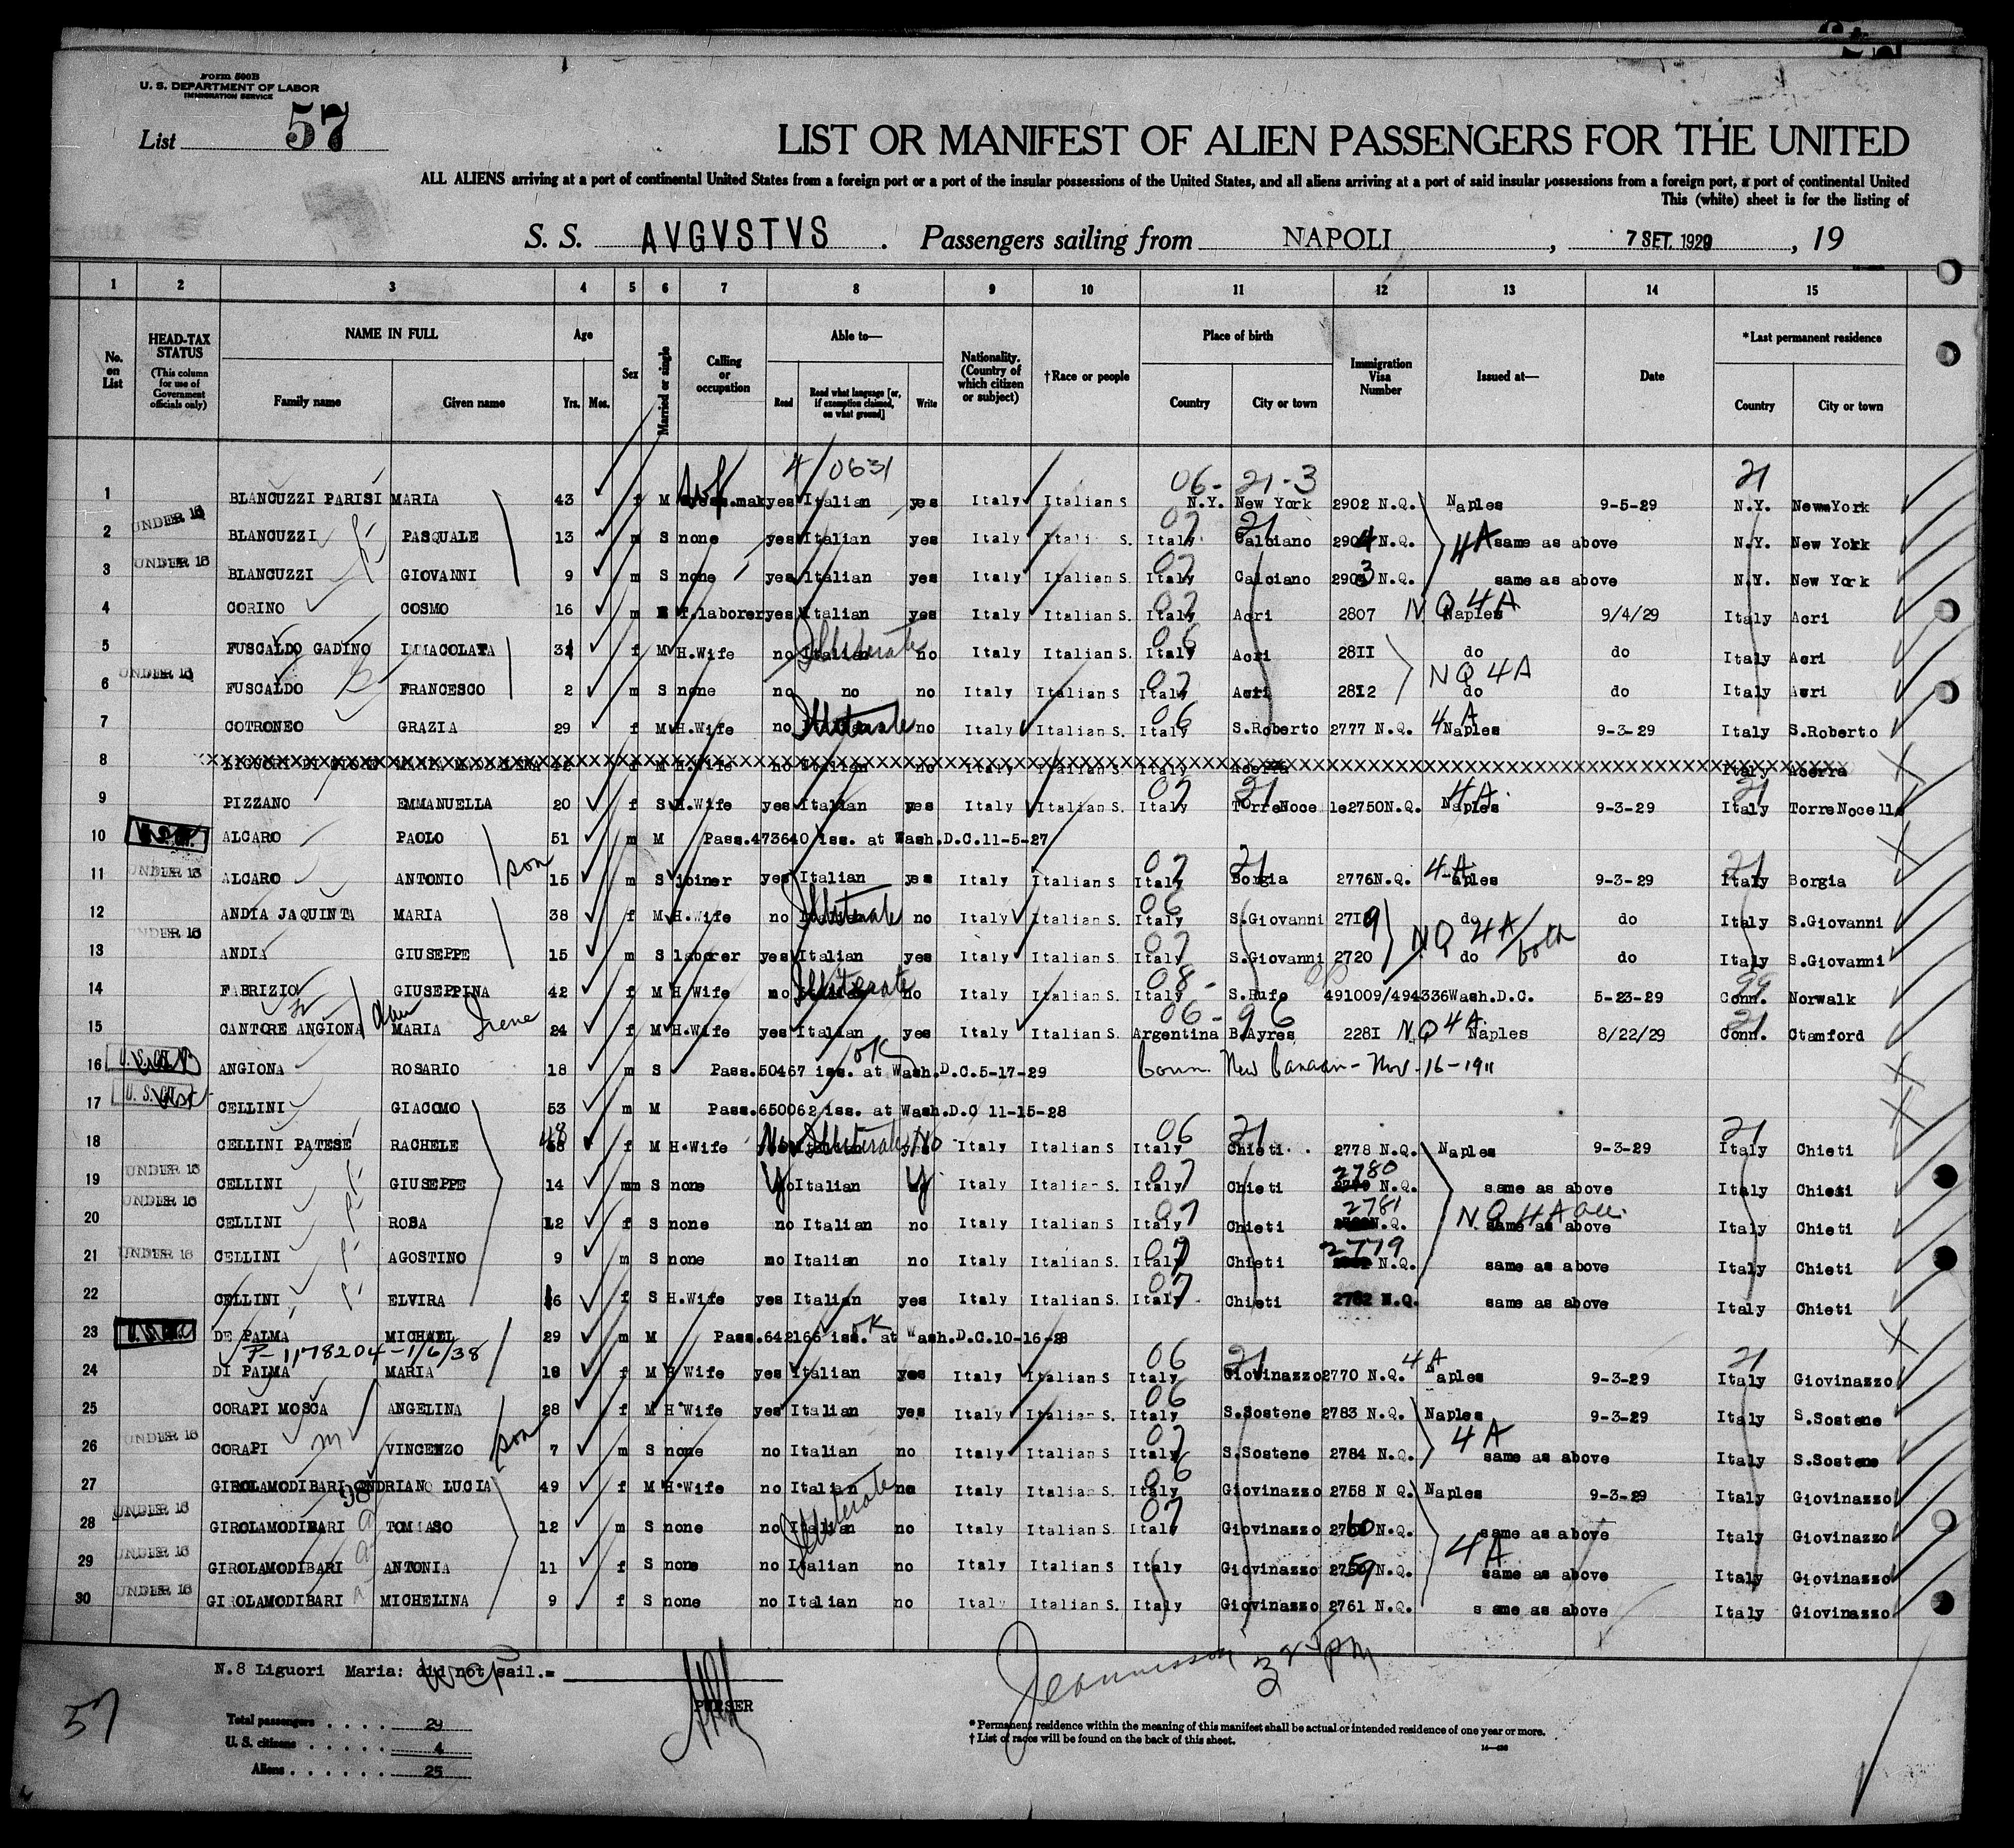 Form 500B
U. S. DEPARTMENT OF LABOR
IMMIGRATION SERVICE
List 57
LIST OR MANIFEST OF ALIEN PASSENGERS FOR THE UNITED
ALL ALIENS arriving at a port of continental United States from a foreign port or a port of the insular possessions of the United States, and all aliens arriving at a port of said insular possessions from a foreign port, a port of continental United
This (white) sheet is for the listing of
S. S. AVGVSTVS . Passengers sailing from NAPOLI , 7 SET. 1929 , 19
1 2 3 4 5 6 7 8 9 10 11 12 13 14 15
No. on List HEAD-TAX STATUS (This column for use of Government officials only) NAME IN FULL Family name Given name Age Yrs. Mos. Sex Married or single Calling or occupation Able to— Read Read what language [or, if exemption claimed, on what ground] Write Nationality. (Country of which citizen or subject) †Race or people Place of birth Country City or town Immigration Visa Number Issued at— Date *Last permanent residence Country City or town
4/0631 06-21-3 21
1 BLANCUZZI PARISI MARIA 43 f M yes Italian yes Italy Italian S N.Y. New York 2902 N.Q. Naples 9-5-29 N.Y. New York
2 UNDER 16 BLANCUZZI PASQUALE 13 m S none yes Italian yes Italy Itali S. 07 Italy 21 Calciano 2904 N.Q. 4A same as above N.Y. New York
3 UNDER 16 BLANCUZZI GIOVANNI 9 m S none yes Italian yes Italy Italian S. 07 Italy Calciano 2903 N.Q. same as above N.Y. New York
4 CORINO COSMO 16 m F.laborer yes Italian yes Italy Italian S. 07 Italy Acri 2807 NQ 4A Naples 9/4/29 Italy Acri
5 FUSCALDO GADINO IMMACOLATA f M H.Wife no Italian Illiterate no Italy Italian S. 06 Italy Acri 2811 do do Italy Acri
6 UNDER 16 FUSCALDO FRANCESCO 2 m S none no no no Italy Italian S 07 Italy Acri 2812 NQ 4A do do Italy Acri
7 COTRONEO GRAZIA 29 f M H.Wife no Illiterate no Italy Italian S. 06 Italy S.Roberto 2777 N.Q. 4A Naples 9-3-29 Italy S.Roberto
8 f M H.Wife no Italian no Italy Italian S. Italy Acerra Italy Acerra
9 PIZZANO EMMANUELLA 20 f S H.Wife yes Italian yes Italy Italian S. 07 Italy 21 TorreNoce le2750N.Q. 4A Naples 9-3-29 21 Italy TorreNocella
10 ALCARO PAOLO 51 m M Pass.473640 iss. at Wash.D.C.11-5-27
11 UNDER 16 ALCARO ANTONIO son 15 m S joiner yes Italian yes Italy Italian S 07 Italy 21 Borgia 2776N.Q. 4-A aples 9-3-29 21 Italy Borgia
12 ANDIA JAQUINTA MARIA 38 f M H.Wife no Illiterate no Italy Italian S. 06 Italy S.Giovanni 2719 do do Italy S.Giovanni
13 UNDER 16 ANDIA GIUSEPPE 15 m S laborer yes Italian yes Italy Italian S. 07 Italy S.Giovanni 2720 NQ 4A both do do Italy S.Giovanni
14 FABRIZIO GIUSEPPINA 42 f M H Wife no Illiterate no Italy Italian S. 08- Italy S.Rufo 491009/494336 Wash.D.C. 5-23-29 99 Conn. Norwalk
15 CANTORE ANGIONA MARIA Irene 24 f M H.Wife yes Italian yes Italy Italian S. 06-96 Argentina B.Ayres 2281 NQ 4A Naples 8/22/29 21 Conn. Ctamford
16 ANGIONA ROSARIO 18 m S Pass.50467 iss. OK at Wash.D.C.5-17-29 Conn. New Canaan - Nov-16-1911
17 CELLINI GIACOMO 53 m M Pass.650062 iss. at Wash.D.C 11-15-28
18 CELLINI PATESE RACHELE 48 f M H.Wife No Illiterate No Italy Italian S 06 Italy 21 Chieti 2778 N.Q. Naples 9-3-29 21 Italy Chieti
19 UNDER 16 CELLINI GIUSEPPE 14 mm S none Y Italian y Italy Italian S 07 Italy Chieti 2780 N.Q. same as above Italy Chieti
20 UNDER 16 CELLINI ROSA 12 f S none no Italian no Italy Italian S 07 Italy Chieti 2781 N.Q. NQ 4A all same as above Italy Chieti
21 UNDER 16 CELLINI AGOSTINO 9 m S none no Italian no Italy Italian S. 07 Italy Chieti 2779 N.Q. same as above Italy Chieti
22 CELLINI ELVIRA f S H.Wife yes Italian yes Italy Italian S. 07 Italy Chieti 2782 N.Q. same as above Italy Chieti
23 DE PALMA MICHAEL 29 m M Pass.642166 iss. OK at Wash.D.C.10-16-28
P-1178204-1/6/38
24 DI PALMA MARIA 18 f M H Wife yes Italian yes Italy Italian S 06 Italy 21 Giovinazzo 2770 N.Q. 4A aples 9-3-29 21 Italy Giovinazzo
25 CORAPI MOSCA ANGELINA 28 f M H.Wife yes Italian yes Italy Italian S. 06 Italy S.Sostene 2783 N.Q. Naples 9-3-29 Italy S.Sostene
26 UNDER 16 CORAPI m VINCENZO son 7 m S none no Italian no Italy Italian S. 07 Italy S.Sostene 2784 N.Q. 4A same as above Italy S.Sostene
27 GIROLAMODIBARI ANDRIANO LUCIA 49 f M H.Wife no Italian no Italy Italian S. 06 Italy Giovinazzo 2758 N Q. Naples 9-3-29 Italy Giovinazzo
28 UNDER 16 GIROLAMODIBARI TOMMASO 12 m S none no Italian Illiterate no Italy Italian S. 07 Italy Giovinazzo 2760 N.Q. same as above Italy Giovinazzo
29 UNDER 16 GIROLAMODIBARI ANTONIA 11 f S none no Italian no Italy Italian S Italy Giovinazzo 2759 N.Q. 4A same as above Italy Giovinazzo
30 UNDER 16 GIROLAMODIBARI MICHELINA 9 f S none no Italian no Italy Italian S. Italy Giovinazzo 2761 N.Q. same as above Italy Giovinazzo
N.8 Liguori Maria: did not sail.=
PURSER
57
Total passengers . . . . 29
U. S. citizens . . . . . 4
Aliens . . . . . . 25
* Permanent residence within the meaning of this manifest shall be actual or intended residence of one year or more.
† List of races will be found on the back of this sheet.